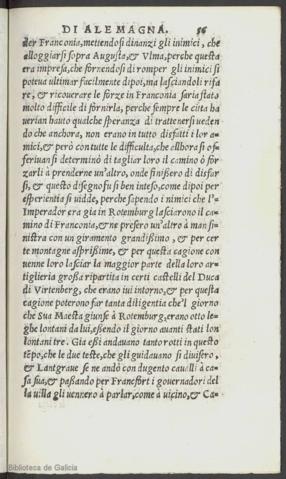 DI ALEMAGNA. 56
der Franconia, mettendosi dinanzi gli inimici, che
alloggiarsi sopra Augusta, & Vlma, perche questa
era impresa, che fornendosi di romper gli inimici si
poteua ultimar facilmente dipoi, ma lasciandoli rifa
re, & ricouerare le forze in Franconia saria stato
molto difficile di fornirla, perche sempre le citta ha
uerian hauto qualche speranza di trattenersi ueden
do che anchora, non erano in tutto disfatti i lor a=
mici, & però con tutte le difficulta, che allhora si of=
feriuan si determinò di tagliar loro il camino ò for=
zarli à prenderne un'altro, onde finissero di disfar
si, & questo disegno fu si ben inteso, come dipoi per
esperientia si uidde, perche sapendo i nimici che l'=
Imperador era gia in Rotemburg lasciarono il ca=
mino di Franconia, & ne presero un'altro à man si=
nistra con un giramento grandissimo, & per cer
te montagne asprissime, & per questa cagione con
uenne loro lasciar la maggior parte della loro ar=
tiglieria grossa ripartita in certi castelli del Duca
di Virtenberg, che erano iui intorno, & per questa
cagione poterono far tanta diligentia che'l giorno
che Sua Maesta giunse à Rotemburg, erano otto le=
ghe lontani da lui, essendo il giorno auanti stati lon
lontani tre. Gia essi andauano tanto rotti in questo
tẽpo, che le due teste, che gli guidauano si diuisero,
& Lantgraue se ne andò con dugento caualli à ca=
sa sua, & passando per Francfort i gouernadori del
la uilla gli uennero à parlar, come à uicino, & Ca=
Biblioteca de Galicia